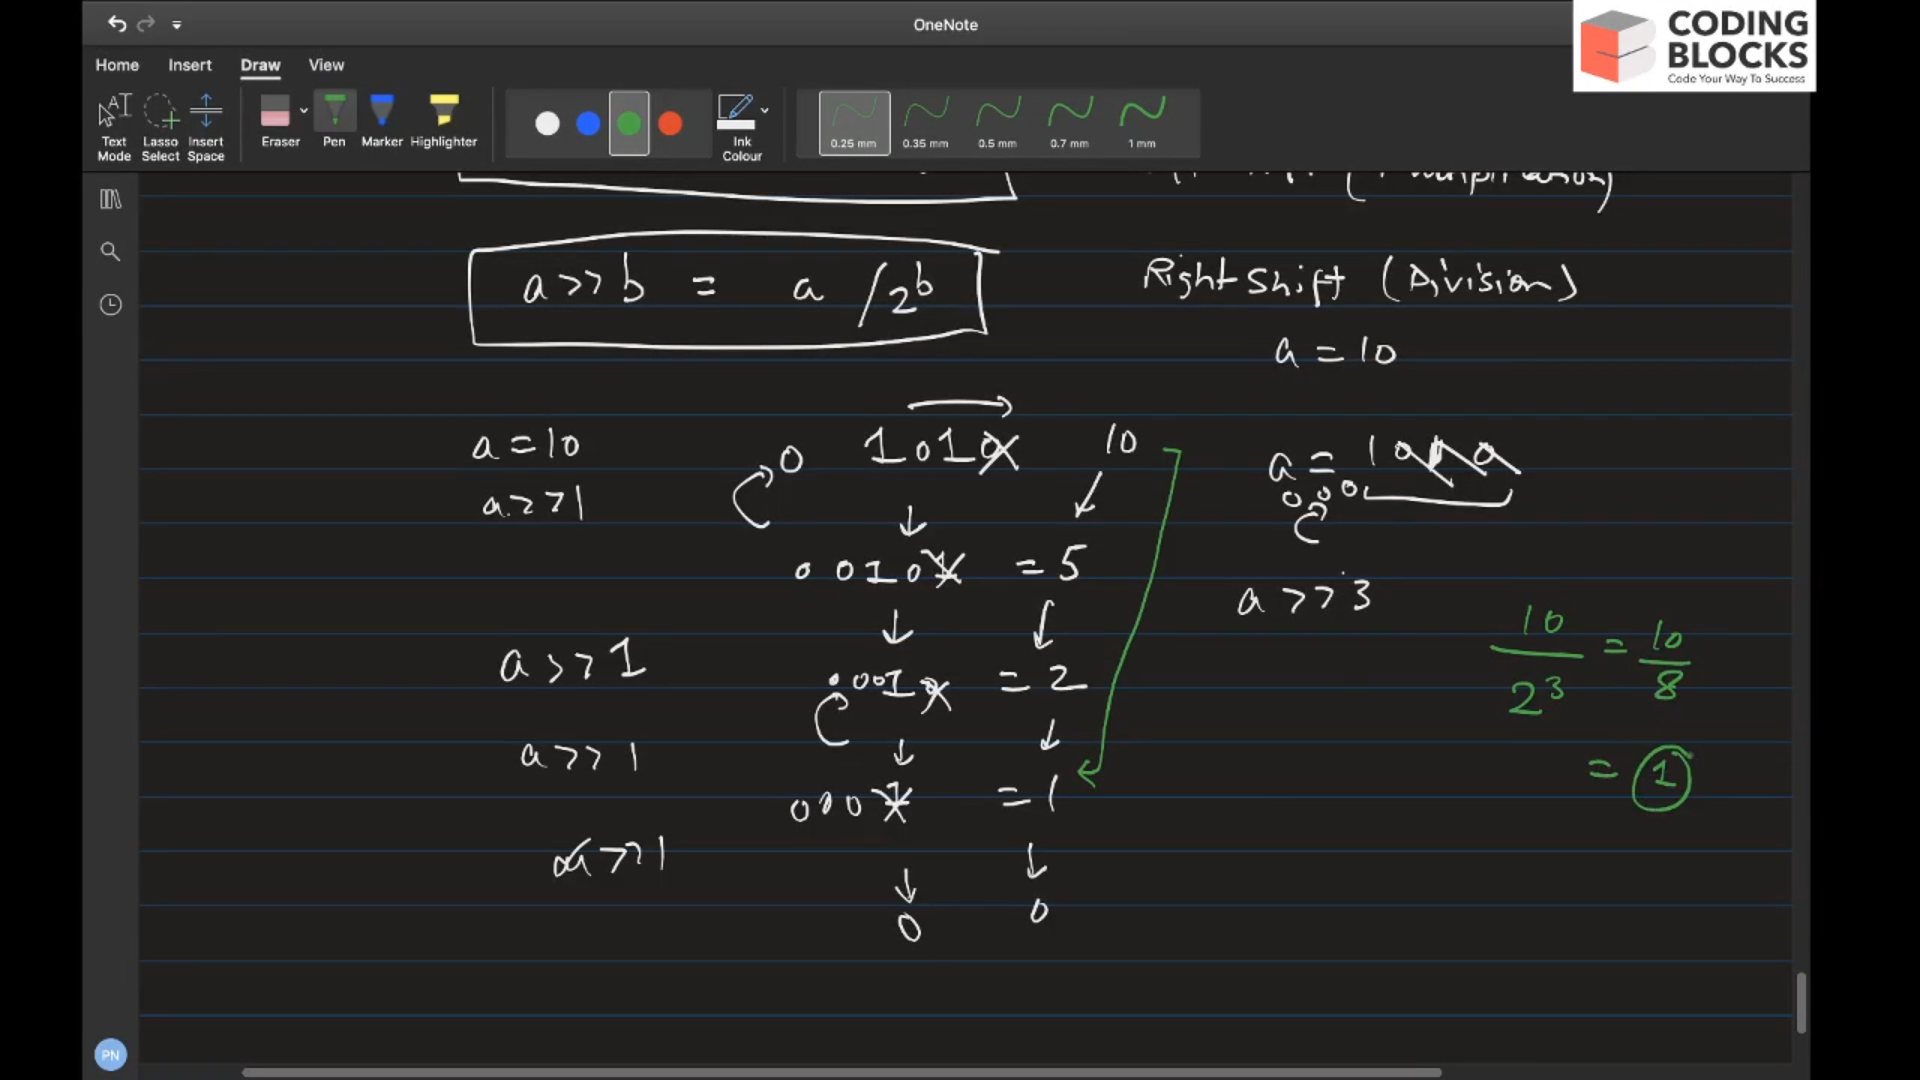 OneNote
CODING
BLOCKS
Code Your Way To Success
Home Insert Draw View
Text Mode
Lasso Select
Insert Space
Eraser
Pen
Marker
Highlighter
Ink Colour
0.25 mm
0.35 mm
0.5 mm
0.7 mm
1 mm
a >> b = a / 2^b
Right Shift (Division)
a = 10
a = 10
0 1010 10
a = 1010
000
a >> 1
00101 = 5
a >> 3
10 / 2^3 = 10 / 8
a >> 1
00010 = 2
= 1
a >> 1
0001 = 1
a >> 1
0 0
PN